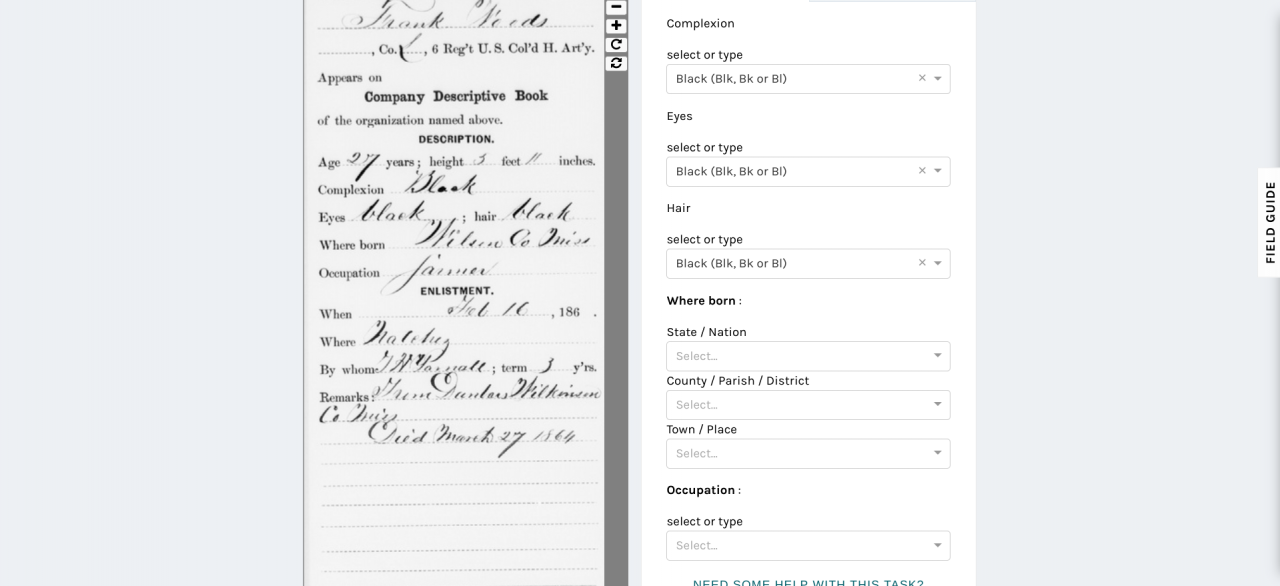 Frank Woods
, Co. L, 6 Reg't U. S. Col'd H. Art'y.
Appears on
Company Descriptive Book
of the organization named above.
DESCRIPTION.
Age 27 years; height 5 feet 11 inches.
Complexion Black
Eyes black ; hair black
Where born Wilson Co Miss
Occupation farmer
ENLISTMENT.
When Feb 16, 186 .
Where Natchez
By whom ; term 3 y'rs.
Remarks: From Dunbars Wilkinson
Co Miss
Died March 27 1864
Complexion
select or type
Black (Blk, Bk or Bl)
Eyes
select or type
Black (Blk, Bk or Bl)
Hair
select or type
Black (Blk, Bk or Bl)
Where born :
State / Nation
Select...
County / Parish / District
Select...
Town / Place
Select...
Occupation :
select or type
Select...
NEED SOME HELP WITH THIS TASK?
FIELD GUIDE